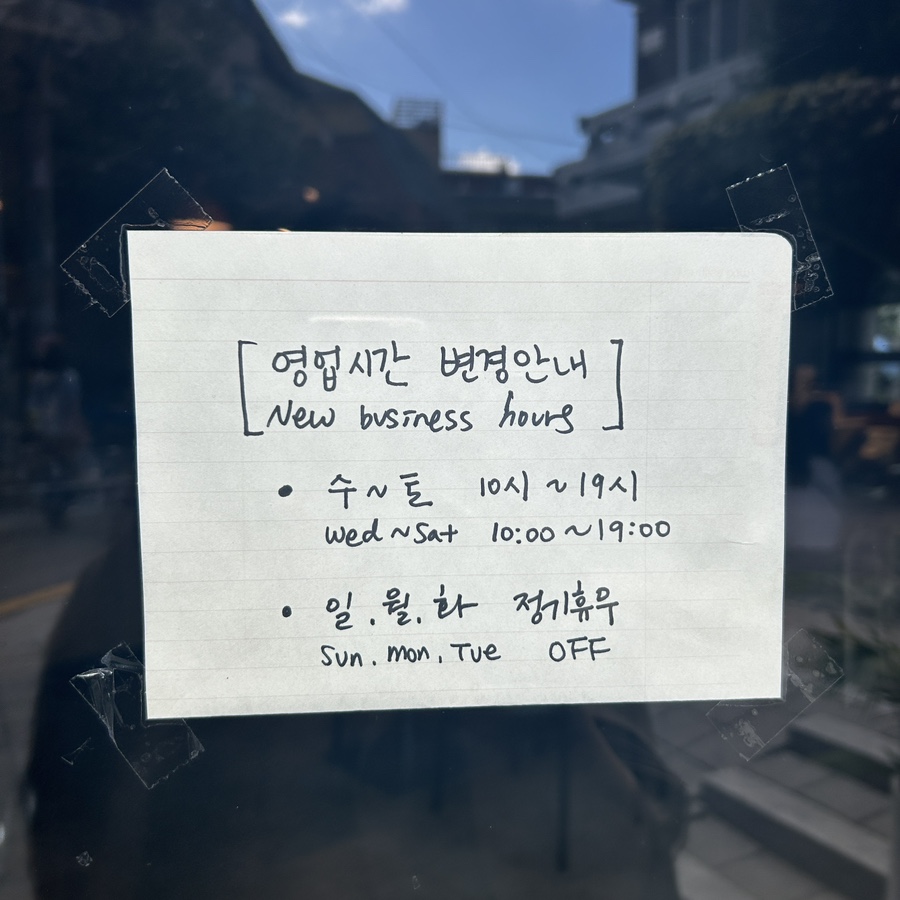 [영업시간 변경안내
New business hours]
• 수~토 10시~19시
Wed~Sat 10:00~19:00
• 일.월.화 정기휴무
Sun. mon. Tue OFF